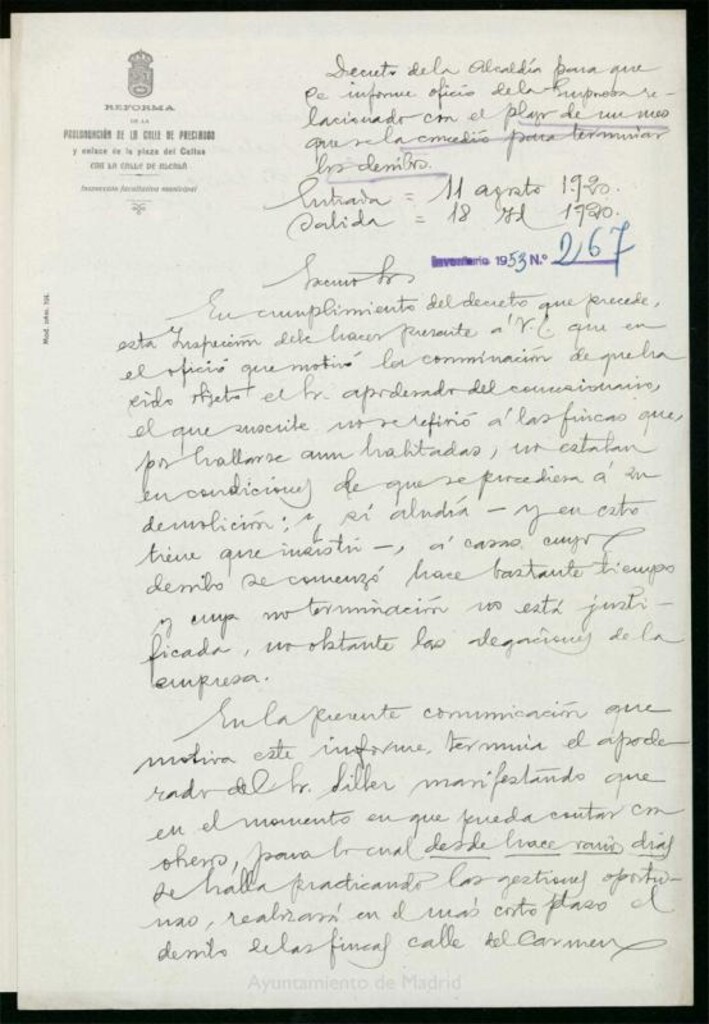 REFORMA
DE LA
PROLONGACIÓN DE LA CALLE DE PRECIADOS
y enlace de la plaza del Callao
CON LA CALLE DE ALCALÁ
Inspección facultativa municipal
Mod. núm. 708.
Decreto de la Alcaldía para que
se informe oficio de la Empresa re-
lacionado con el plazo de un mes
que se la concedió para terminar
los derribos.
Entrada = 11 agosto 1920.
Salida = 18 id 1920.
Inventario 1953 N.º 267
Excmo Sr
En cumplimiento del decreto que precede,
esta Inspección debe hacer presente á V.E. que en
el oficio que motivó la conminación de que ha
sido objeto el Sr. apoderado del concesionario,
el que suscribe no se refirió á las fincas que,
por hallarse aun habitadas, no estaban
en condiciones de que se procediera á su
demolición; sí aludía — y en esto
tiene que insistir —, á casas cuyo
derribo se comenzó hace bastante tiempo
y cuya no terminación no está justi-
ficada, no obstante las alegaciones de la
empresa.
En la presente comunicación que
motiva este informe, termina el apode-
rado del Sr. Silber manifestando que
en el momento en que pueda contar con
obreros, para lo cual desde hace varios días
se halla practicando las gestiones oportu-
nas, realizará en el más corto plazo el
derribo de las fincas calle del Carmen
Ayuntamiento de Madrid